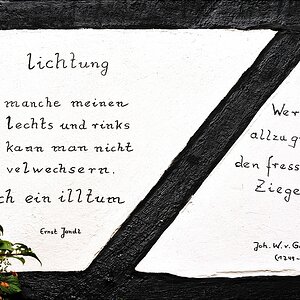 lichtung
manche meinen
lechts und rinks
kann man nicht
velwechsern.
ch ein illtum
Ernst Jandl
Wer
allzu g
den fress
Ziege
Joh. W. v. G
(1749-